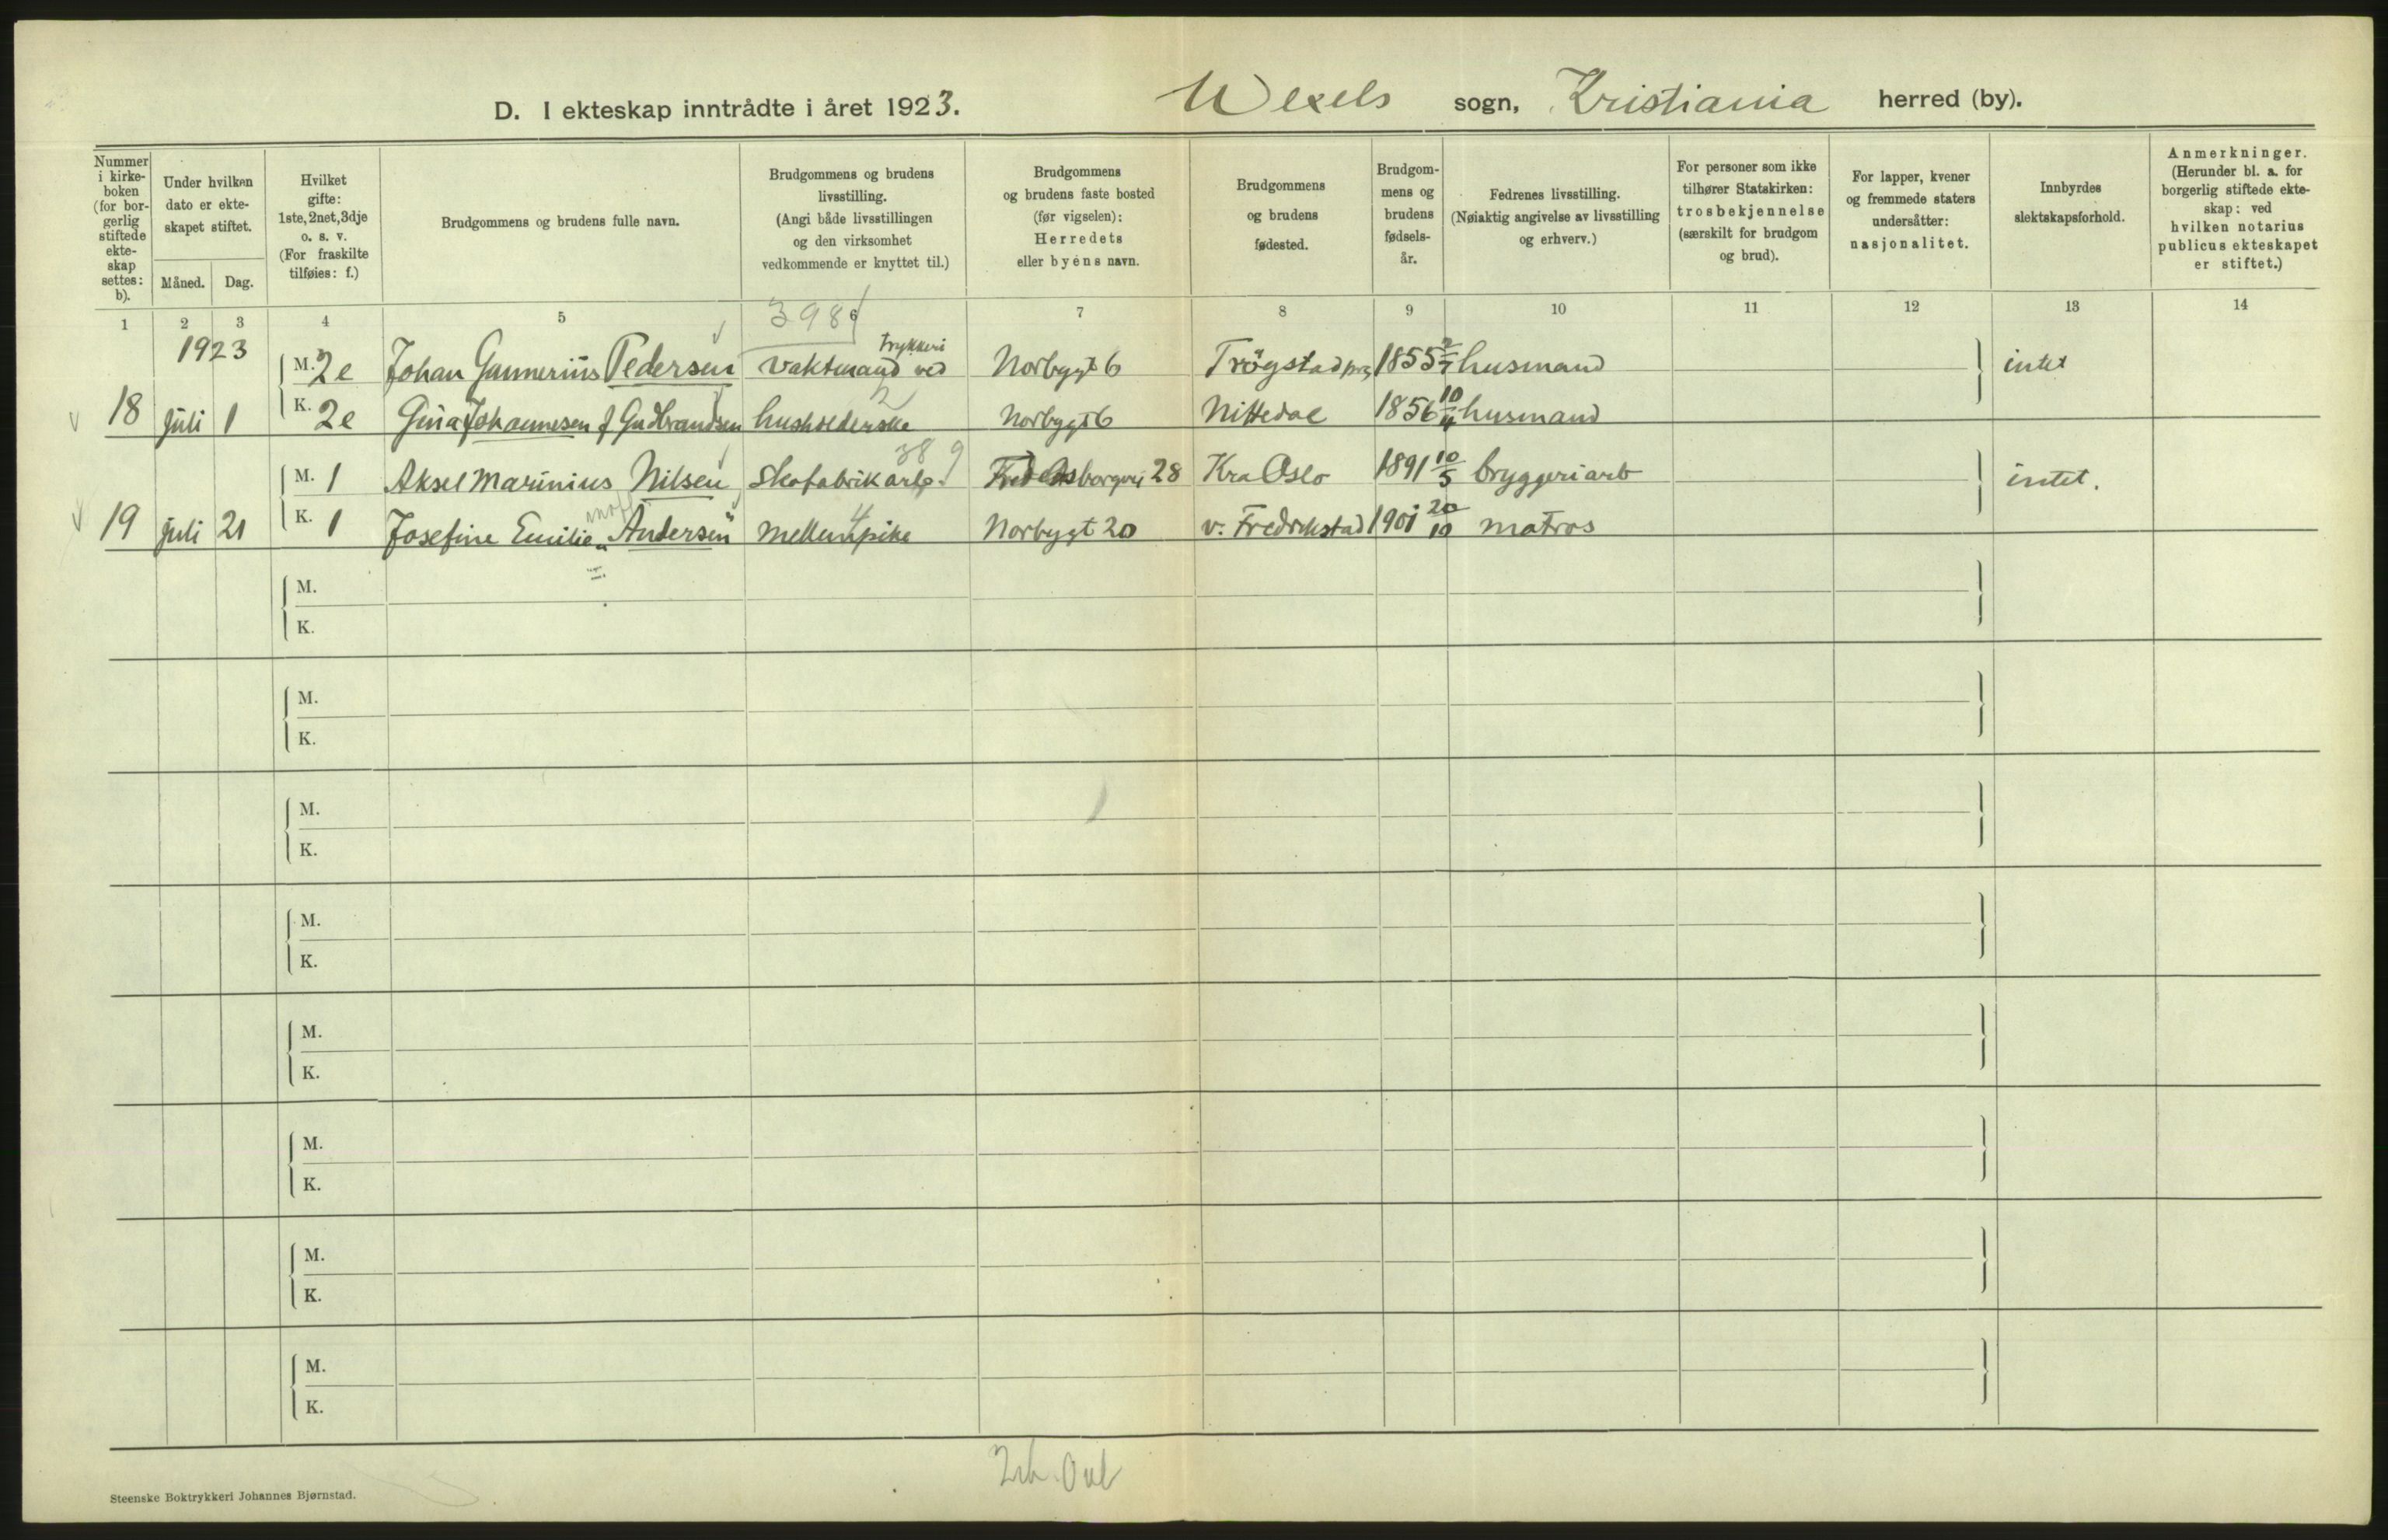 D. I ekteskap inntrådte i året 1923. Wexels sogn, Kristiania herred (by).
Nummer i kirke-boken (for bor-gerlig stiftede ekte-skap settes: b).
Under hvilken dato er ekte-skapet stiftet.
Måned. Dag.
Hvilket gifte: 1ste, 2net, 3dje o. s. v. (For fraskilte tilføies: f.)
Brudgommens og brudens fulle navn.
Brudgommens og brudens livsstilling. (Angi både livsstillingen og den virksomhet vedkommende er knyttet til.)
Brudgommens og brudens faste bosted (før vigselen): Herredets eller byens navn.
Brudgommens og brudens fødested.
Brudgom-mens og brudens fødsels-år.
Fedrenes livsstilling. (Nøiaktig angivelse av livsstilling og erhverv.)
For personer som ikke tilhører Statskirken: trosbekjennelse (særskilt for brudgom og brud).
For lapper, kvener og fremmede staters undersåtter: nasjonalitet.
Innbyrdes slektskapsforhold.
Anmerkninger. (Herunder bl. a. for borgerlig stiftede ekte-skap: ved hvilken notarius publicus ekteskapet er stiftet.)
1 2 3 4 5 6 7 8 9 10 11 12 13 14
398
1923 M. 2e Johan Gunnerius Pedersen vaktmand ved trykkeri Norbygt 6 Trögstad 1855 husmand intet
2
18 juli 1 K. 2e Gina Johannesen f Gudbrandsen husholderske Norbygt 6 Nittedal 1856 10/4 husmand
38 9
M. 1 Aksel Marinius Nilsen Skofabrikarb. 28 Kra Oslo 1891 10/5 bryggeriarb intet.
4
19 juli 21 K. 1 Josefine Emilie Andersen mellempike Norbygt 20 v. Fredrikstad 1901 20/10 matros
M.
K.
M.
K.
M.
K.
M.
K.
M.
K.
M.
K.
M.
K.
M.
K.
Steenske Boktrykkeri Johannes Bjørnstad.